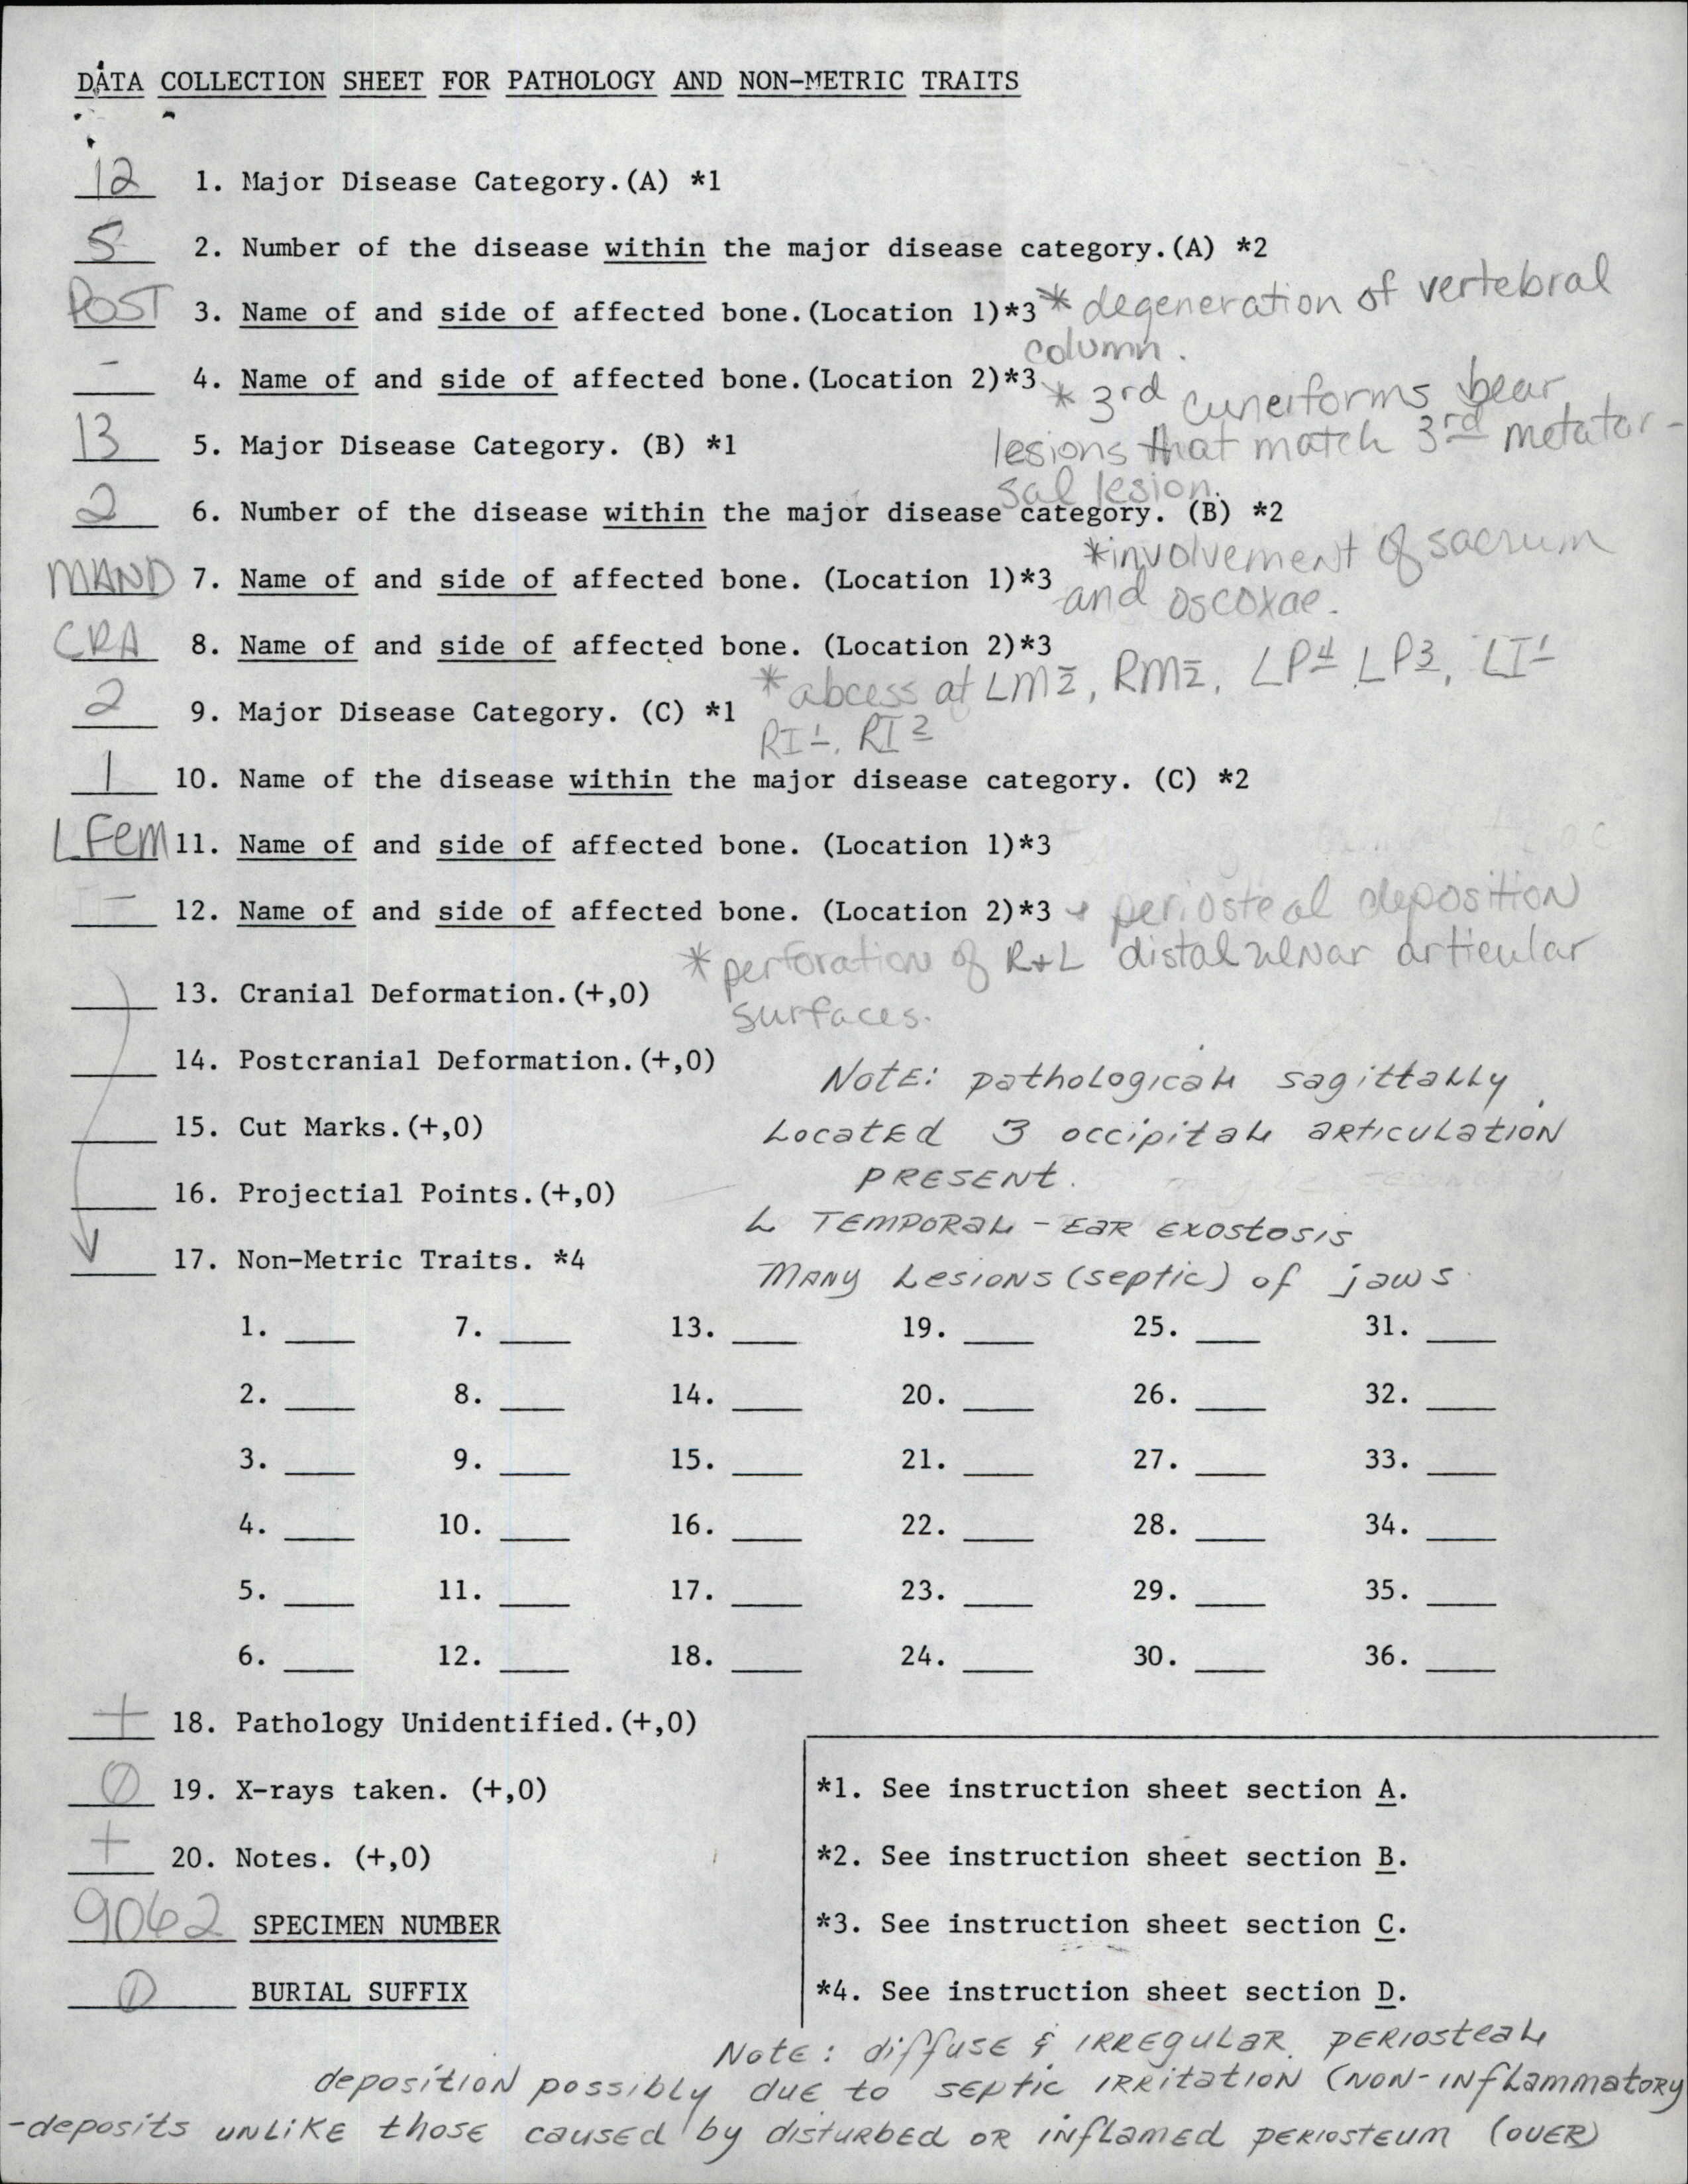 DATA COLLECTION SHEET FOR PATHOLOGY AND NON-METRIC TRAITS
12 1. Major Disease Category.(A) *1
5 2. Number of the disease within the major disease category.(A) *2
POST 3. Name of and side of affected bone.(Location 1)*3 * degeneration of vertebral
column.
- 4. Name of and side of affected bone.(Location 2)*3 * 3rd cuneiforms bear
13 5. Major Disease Category. (B) *1 lesions that match 3rd metatar-
sal lesion.
2 6. Number of the disease within the major disease category. (B) *2
*involvement of sacrum
MAND 7. Name of and side of affected bone. (Location 1)*3 and oscoxae.
CRA 8. Name of and side of affected bone. (Location 2)*3
*abcess at LM2, RM2, LP4 LP3, LI1
2 9. Major Disease Category. (C) *1
RI1, RI2
1 10. Name of the disease within the major disease category. (C) *2
LFem 11. Name of and side of affected bone. (Location 1)*3
- 12. Name of and side of affected bone. (Location 2)*3 periosteal deposition
*perforation of R+L distal ulnar articular
13. Cranial Deformation.(+,0) surfaces.
14. Postcranial Deformation.(+,0)
Note: pathological sagittally
15. Cut Marks.(+,0) Located 3 occipital articulation
PRESENT.
16. Projectial Points.(+,0)
L TEMPORAL - EAR EXOSTOSIS
17. Non-Metric Traits. *4 MANY Lesions (septic) of jaws
1. 7. 13. 19. 25. 31.
2. 8. 14. 20. 26. 32.
3. 9. 15. 21. 27. 33.
4. 10. 16. 22. 28. 34.
5. 11. 17. 23. 29. 35.
6. 12. 18. 24. 30. 36.
+ 18. Pathology Unidentified.(+,0)
0 19. X-rays taken. (+,0) *1. See instruction sheet section A.
+ 20. Notes. (+,0) *2. See instruction sheet section B.
9062 SPECIMEN NUMBER *3. See instruction sheet section C.
0 BURIAL SUFFIX *4. See instruction sheet section D.
Note: diffuse & IRREGULAR PERIOSTEAL
deposition possibly due to septic IRRitation (NON-INflammatory
-deposits UNLIKE those caused by disturbed OR inflamed PERIOSTEUM (OVER)